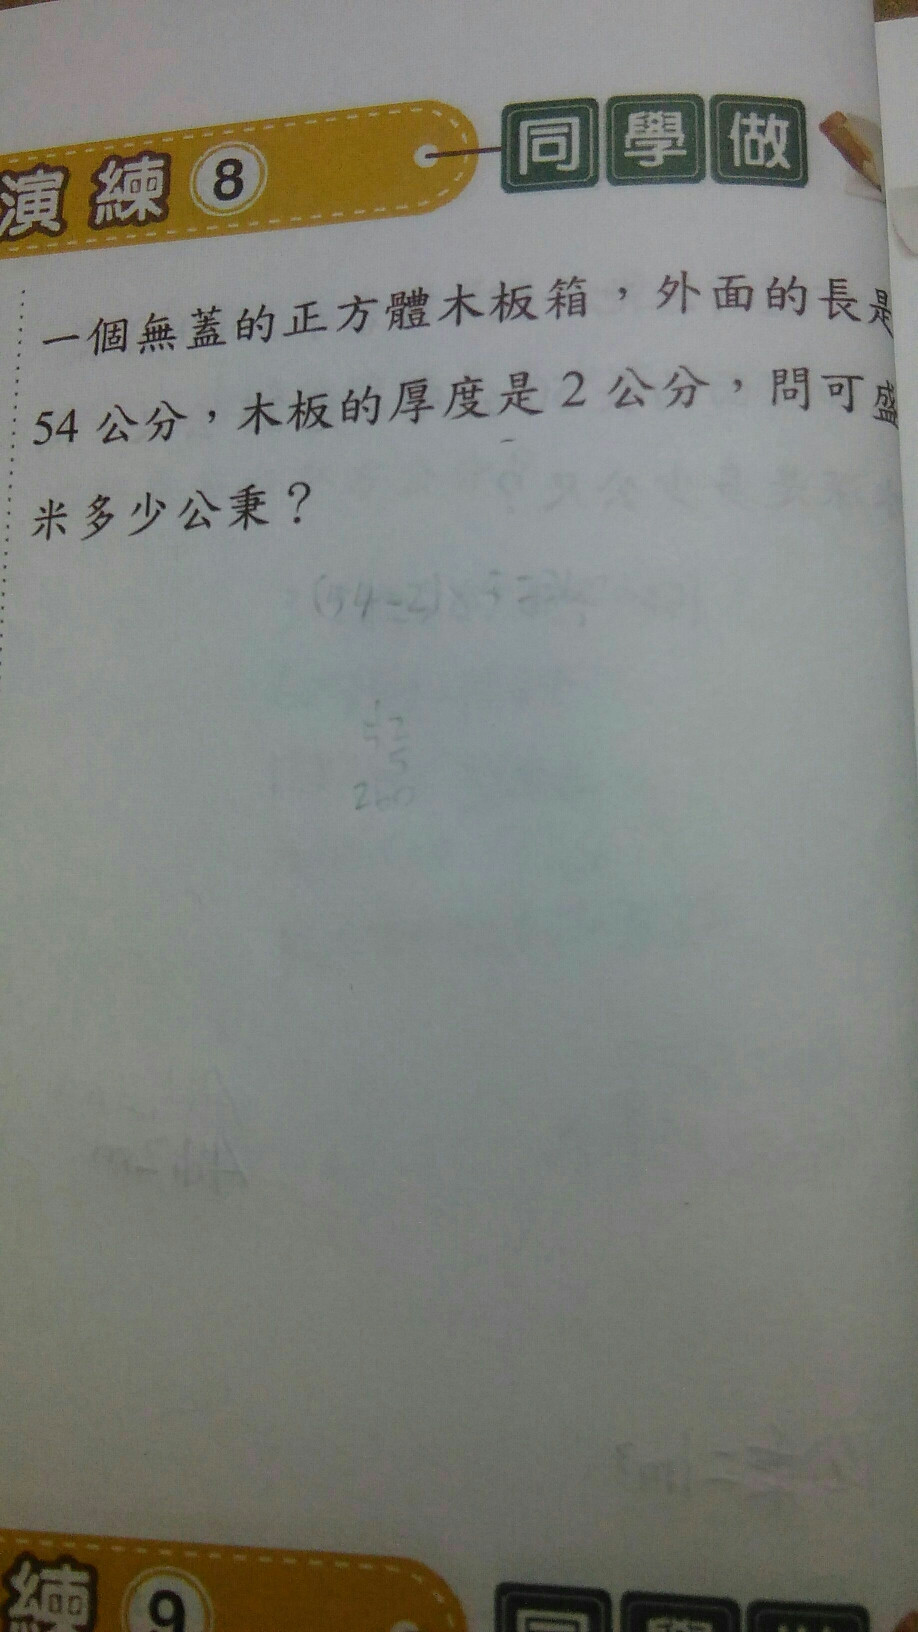 演練 8 同學做
一個無蓋的正方體木板箱，外面的長是
54 公分，木板的厚度是 2 公分，問可盛
米多少公秉？
52
5
260
練 9